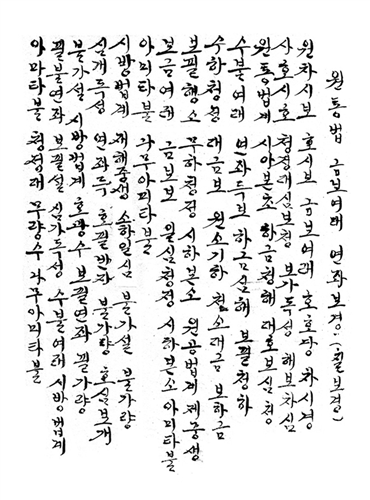 원통법 금보여래 연좌보경 (필보경)
원차시보 호시보 금보여래 호호당 차시경
사호시호 청정대심보청 보가득성 해보차심
원통법계 시아본초 하금청해 대호보심청
수불여래 연좌득보 하금산해 보필청하
수하청순 대금보 원소기하 청소대금 보하금
보필행소 무하청정 시하본소 원공법계 제중생
보금여래 금보보 일심청정 시하본소 아미타불
아미타불 나무아미타불
시방법계 대해중생 소하일심 불가설 불가량
심개득성 연좌득 호필반좌 불가량 호심보개
불가설 시방법계 호광수 보필연좌 필가량
필불연좌 보필설 심가득성 수불여래 시방법계
아미타불 청정해 무량수 나무아미타불